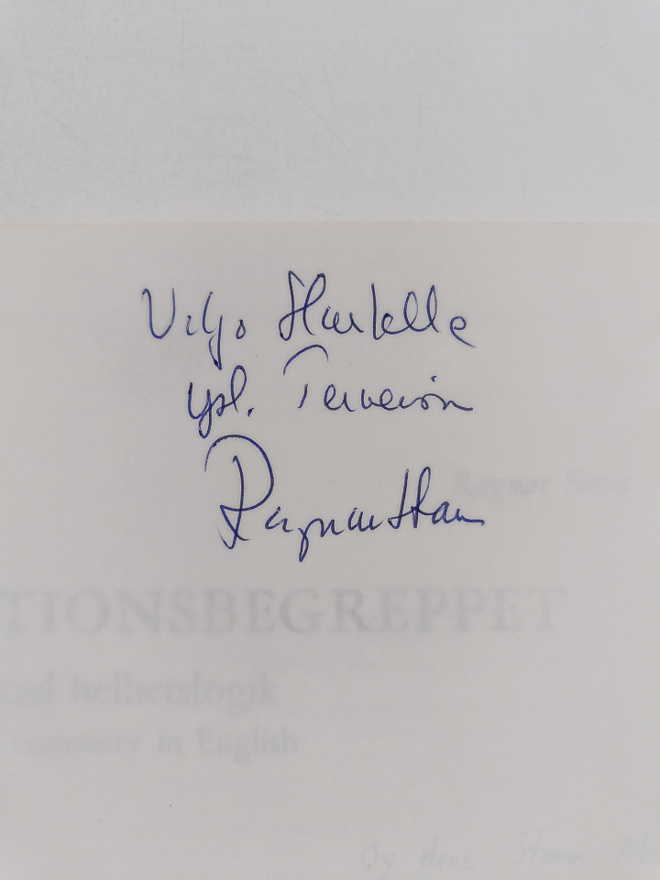 Viljo
yst. Terveisin
Ragnar Stam
Ragnar Stam
TIONSBEGREPPET
cial helhetslogik
summary in English